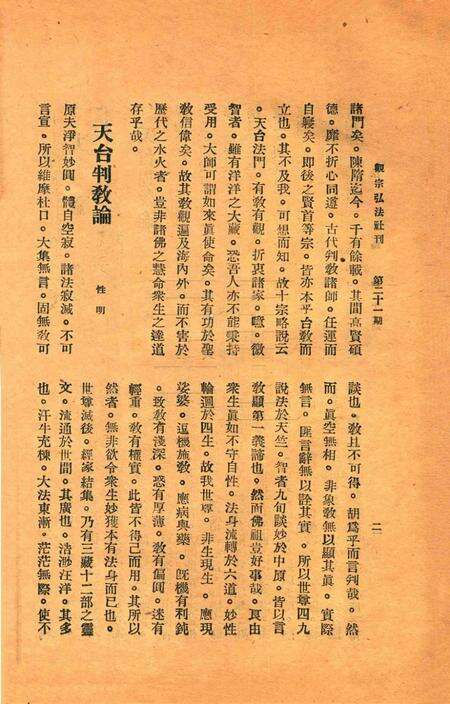 觀宗弘法社刊　第二十一期
二
諸門矣。陳隋迄今。千有餘載。其間高賢碩
德。靡不折心同遵。古代判教諸師。任運而
自寢矣。即後之賢首等宗。皆亦本乎台教而
立也。其不及我。可想而知。故十宗略說云
。天台法門。有教有觀。折衷諸家。噫。微
智者。雖有洋洋之大藏。恐吾人亦不能秉持
受用。大師可謂如來眞使命矣。其有功於聖
教信偉矣。故其教觀遍及海內外。而不害於
歷代之水火者。豈非諸佛之慧命衆生之達道
存乎哉。
天台判教論
性明
原夫淨智妙圓。體自空寂。諸法寂滅。不可
言宣。所以維摩杜口。大集無言。固無教可
談也。教且不可得。胡爲乎而言判哉。然
而。眞空無相。非象教無以顯其眞。實際
無言。匪言辭無以詮其實。所以世尊四九
說法於天竺。智者九旬談妙於中原。皆以言
教顯第一義諦也。然而佛祖豈好事哉。良由
衆生眞如不守自性。法身流轉於六道。妙性
輪迴於四生。故我世尊。非生現生。應現
娑婆。逗機施教。應病與藥。旣機有利鈍
。致教有淺深。惑有厚薄。教有偏圓。迷有
輕重。教有權實。此皆不得己而用。其所以
然者。無非欲令衆生妙獲本有法身而已也。
世尊滅後。經家結集。乃有三藏十二部之靈
文。流通於世間。其廣也。浩渺汪洋。其多
也。汗牛充棟。大法東漸。茫茫無際。使不